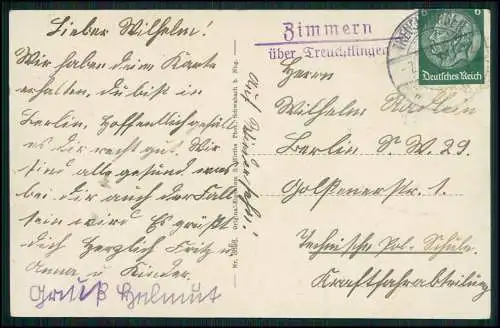 Lieber Wilhelm!
Wir haben deine Karte
erhalten, du bist in
Berlin, Hoffentlich gefällt
es dir recht gut. Wir
sind alle gesund was
bei dir auch der Fall
sein wird Es grüßt
dich Herzlich Fritz u
Anna u Kinder.
Gruß Helmut
Auf Wiedersehn!
Zimmern
über Treuchtlingen
6
Deutsches Reich
Herrn
Wilhelm
Berlin S.W. 29.
Golßenerstr. 1.
Technische Pol. Schule
Kraftfahrabteilung